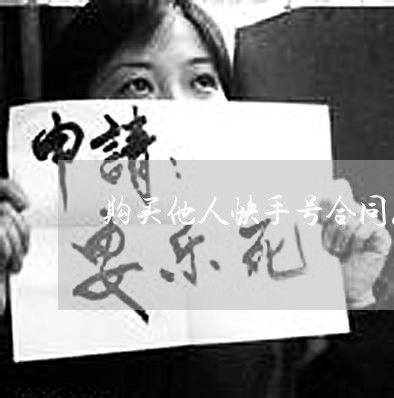 申請：
购买他人快手号合同
安乐死